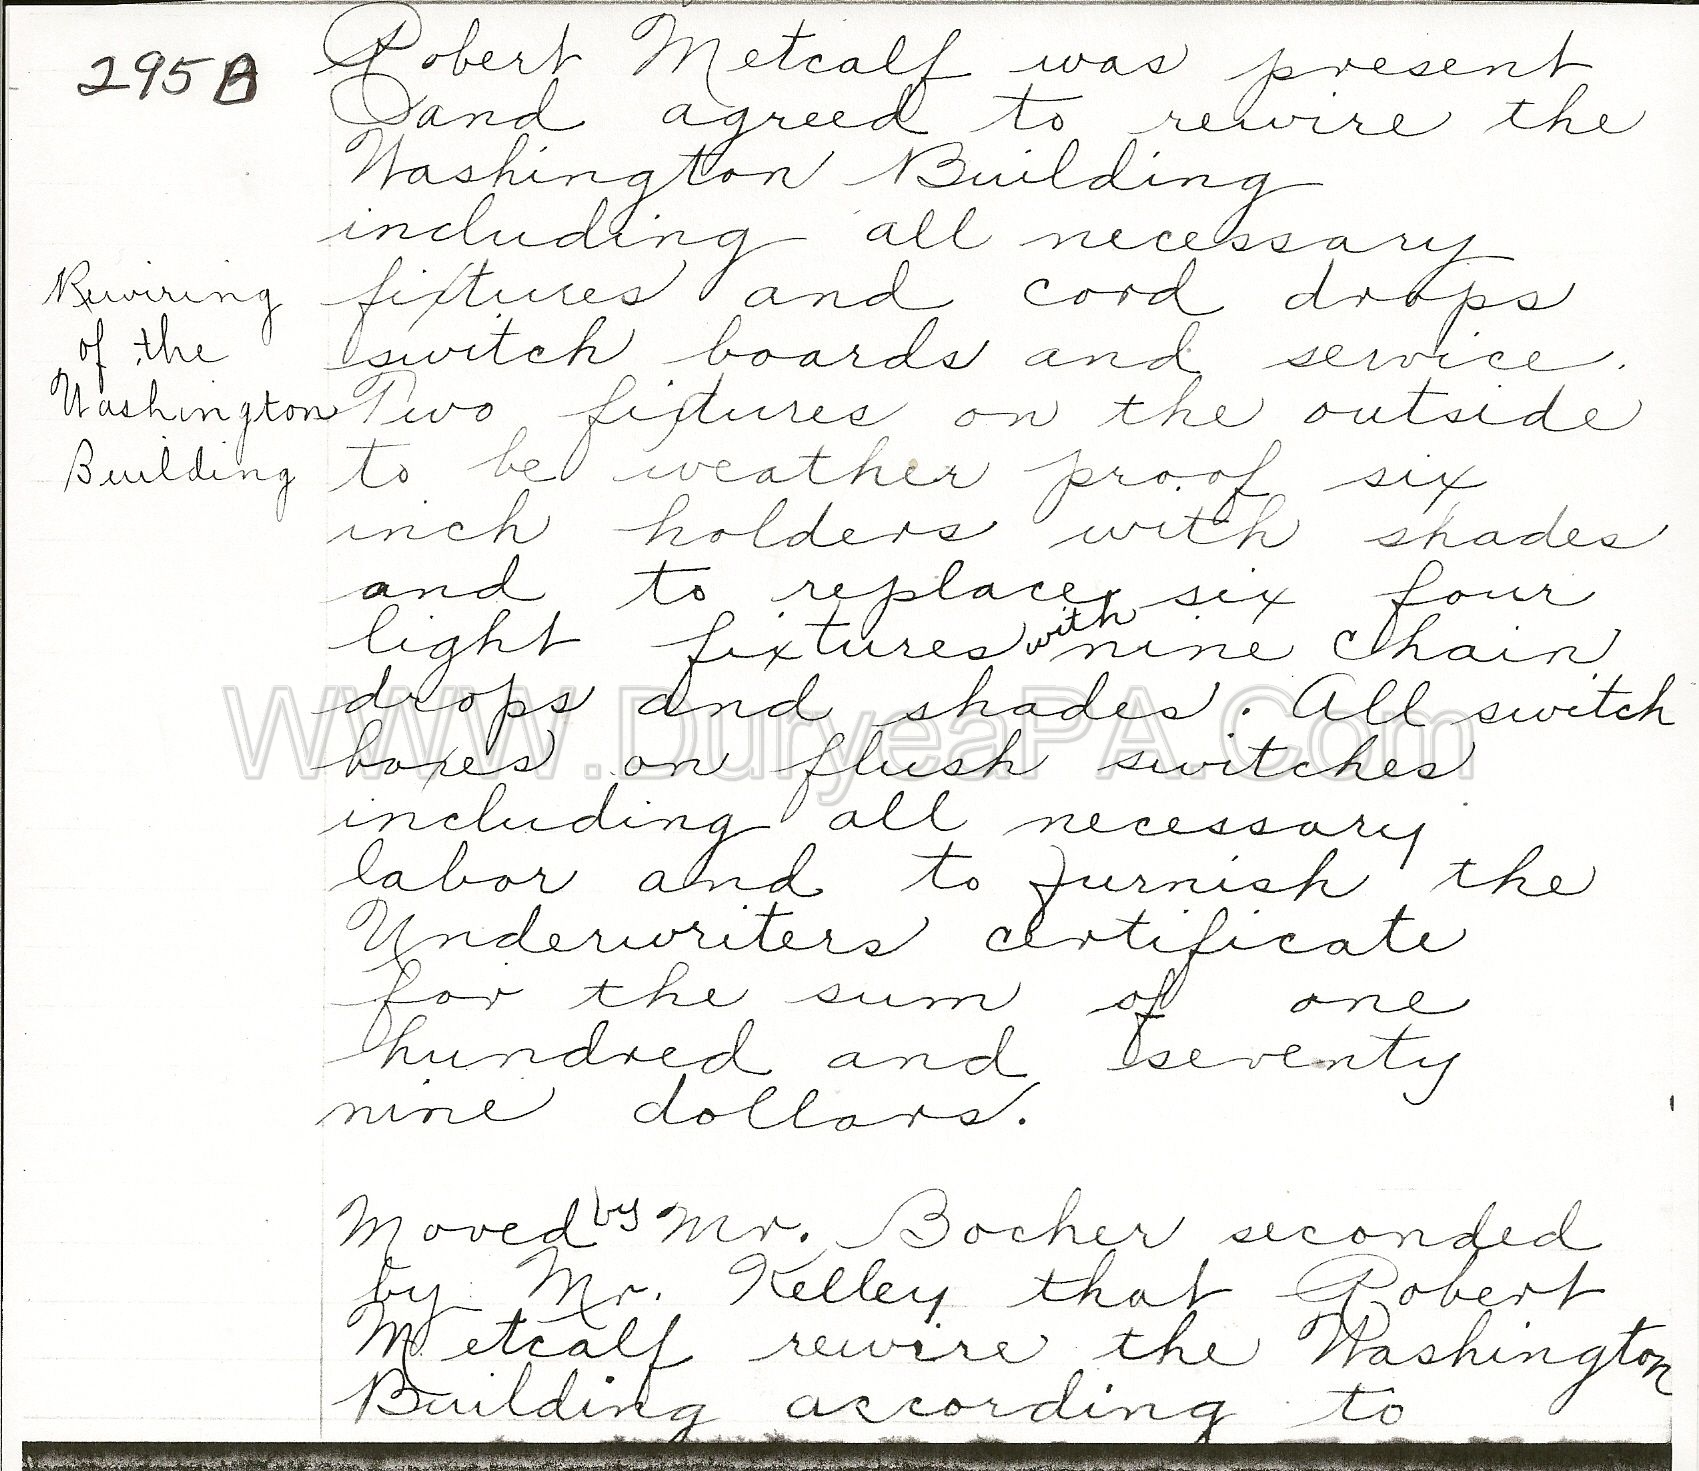 295B
Robert Metcalf was present
and agreed to rewire the
Washington Building
including all necessary
fixtures and cord drops
switch boards and service.
Two fixtures on the outside
to be weather proof six
inch holders with shades
and to replace six four
light fixtures with nine chain
drops and shades. All switch
boxes on flush switches
including all necessary
labor and to furnish the
Underwriters certificate
for the sum of one
hundred and seventy
nine dollars.
Rewiring
of the
Washington
Building
Moved by Mr. Bocher seconded
by Mr. Kelley that Robert
Metcalf rewire the Washington
Building according to
WWW.DuryeaPA.Com